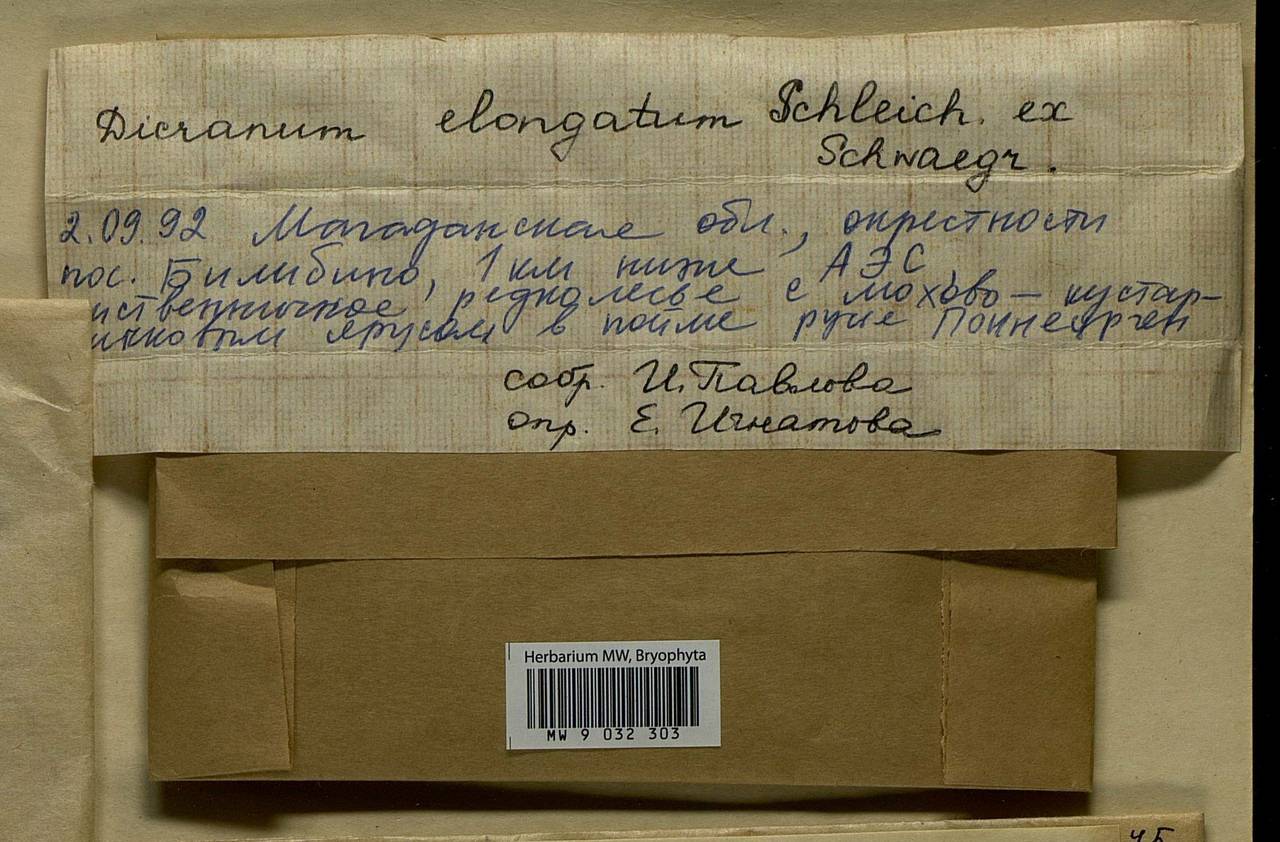 Dicranum elongatum Schleich. ex
Schwaegr.
2.09.92 Магаданская обл., окрестности
пос. Билибино, 1 км ниже АЭС,
иственничное редколесье с мохово-кустар-
ичковым ярусом в пойме
собр. И. Павлова
опр. Е. Игнатова
Herbarium MW, Bryophyta
MW 9 032 303
45